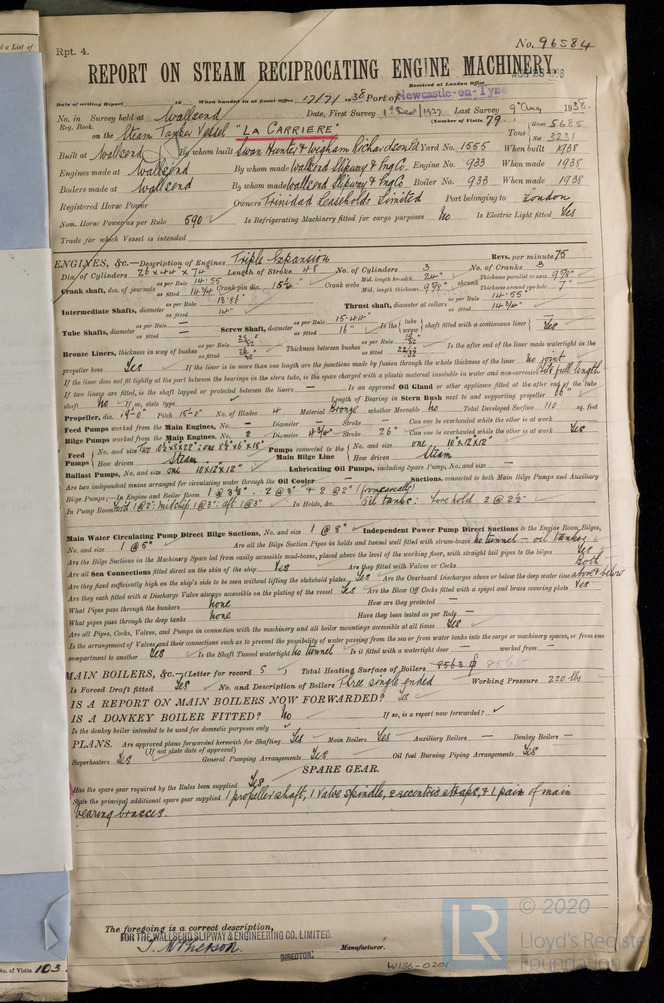 d a List of
Rpt. 4.
No. 96584
REPORT ON STEAM RECIPROCATING ENGINE MACHINERY.
Received at London Office
Date of writing Report 19 When handed in at Local Office 17/7/ 1938 Port of Newcastle-on-Tyne
No. in Survey held at Wallsend Date, First Survey 1st Dec/1937 Last Survey 9th Aug 1938.
Reg. Book. (Number of Visits 79.)
on the Steam Tanker Vessel "LA CARRIERE" Tons Gross 5685 Net 3231
Built at Wallsend By whom built Swan Hunter & Wigham Richardson Ld Yard No. 1555 When built 1938
Engines made at Wallsend By whom made Wallsend Slipway & Eng Co. Engine No. 933 When made 1938
Boilers made at Wallsend By whom made Wallsend Slipway & Eng Co Boiler No. 933 When made 1938
Registered Horse Power Owners Trinidad Leaseholds Limited Port belonging to London
Nom. Horse Power as per Rule 590 Is Refrigerating Machinery fitted for cargo purposes No Is Electric Light fitted Yes
Trade for which Vessel is intended
ENGINES, &c.—Description of Engines Triple Expansion Revs. per minute 75
Dia. of Cylinders 26 x 44 x 74 Length of Stroke 48 No. of Cylinders 3 No. of Cranks 3
Crank shaft, dia. of journals as per Rule 14.55 as fitted 14¾ Crank pin dia. 15¼" Crank webs Mid. length breadth 24" Mid. length thickness 9⅝" shrunk Thickness parallel to axis 9⅝" Thickness around eye-hole 7"
Intermediate Shafts, diameter as per Rule 13.86" as fitted 14" Thrust shaft, diameter at collars as per Rule 14.55" as fitted 14¾"
Tube Shafts, diameter as per Rule — as fitted — Screw Shaft, diameter as per Rule 15.44 as fitted 16" Is the tube screw shaft fitted with a continuous liner Yes
Bronze Liners, thickness in way of bushes as per Rule as fitted Thickness between bushes as per Rule as fitted Is the after end of the liner made watertight in the
propeller boss Yes If the liner is in more than one length are the junctions made by fusion through the whole thickness of the liner no joint
If the liner does not fit tightly at the part between the bearings in the stern tube, is the space charged with a plastic material insoluble in water and non-corrosive full length
If two liners are fitted, is the shaft lapped or protected between the liners — Is an approved Oil Gland or other appliance fitted at the after end of the tube
shaft No If so, state type Length of Bearing in Stern Bush next to and supporting propeller 66"
Propeller, dia. 19'-0" Pitch 15'-0" No. of Blades 4 Material Bronze whether Moveable No Total Developed Surface 110 sq. feet
Feed Pumps worked from the Main Engines, No. — Diameter — Stroke — Can one be overhauled while the other is at work —
Bilge Pumps worked from the Main Engines, No. 2 Diameter 4¾" Stroke 26" Can one be overhauled while the other is at work Yes
Feed Pumps No. and size Two 8½"x8"x22"; one 8½"x6"x18" Pumps connected to the Main Bilge Line No. and size one 10"x12"x12"
How driven Steam How driven Steam
Ballast Pumps, No. and size one 10"x12"x12" Lubricating Oil Pumps, including Spare Pump, No. and size —
Are two independent means arranged for circulating water through the Oil Cooler — Suctions, connected to both Main Bilge Pumps and Auxiliary
Bilge Pumps;—In Engine and Boiler Room 1 @ 3½" . 2 @ 3" + 2 @ 2"
In Pump Room 1 @ 2": midship 1 @ 3": aft 1 @ 3" In Holds, &c. Oil tanks: Fore hold 2 @ 2½"
Main Water Circulating Pump Direct Bilge Suctions, No. and size 1 @ 8" Independent Power Pump Direct Suctions to the Engine Room Bilges,
No. and size 1 @ 5" Are all the Bilge Suction Pipes in holds and tunnel well fitted with strum-boxes No tunnel - oil tanker
Are the Bilge Suctions in the Machinery Space led from easily accessible mud-boxes, placed above the level of the working floor, with straight tail pipes to the bilges Yes
Are all Sea Connections fitted direct on the skin of the ship Yes Are they fitted with Valves or Cocks Both
Are they fixed sufficiently high on the ship's side to be seen without lifting the stokehold plates Yes Are the Overboard Discharges above or below the deep water line above & below
Are they each fitted with a Discharge Valve always accessible on the plating of the vessel Yes Are the Blow Off Cocks fitted with a spigot and brass covering plate Yes
What Pipes pass through the bunkers None How are they protected —
What pipes pass through the deep tanks None Have they been tested as per Rule —
Are all Pipes, Cocks, Valves, and Pumps in connection with the machinery and all boiler mountings accessible at all times Yes
Is the arrangement of Valves and their connections such as to prevent the possibility of water passing from the sea or from water tanks into the cargo or machinery spaces, or from one
compartment to another Yes Is the Shaft Tunnel watertight No tunnel Is it fitted with a watertight door — worked from —
MAIN BOILERS, &c.—(Letter for record S) Total Heating Surface of Boilers 8563
Is Forced Draft fitted Yes No. and Description of Boilers Three single ended Working Pressure 220 lbs
IS A REPORT ON MAIN BOILERS NOW FORWARDED? Yes
IS A DONKEY BOILER FITTED? No If so, is a report now forwarded?
Is the donkey boiler intended to be used for domestic purposes only
PLANS. Are approved plans forwarded herewith for Shafting Yes Main Boilers Yes Auxiliary Boilers — Donkey Boilers —
(If not state date of approval)
Superheaters Yes General Pumping Arrangements Yes Oil fuel Burning Piping Arrangements Yes
SPARE GEAR.
Has the spare gear required by the Rules been supplied Yes
State the principal additional spare gear supplied 1 propeller shaft, 1 valve spindle, 2 eccentric straps, & 1 pair of main
bearing brasses.
The foregoing is a correct description,
FOR THE WALLSEND SLIPWAY & ENGINEERING CO. LIMITED
Manufacturer.
DIRECTOR.
No. of Visits 103
W136-0201
LR
© 2020
Lloyd's Register
Foundation